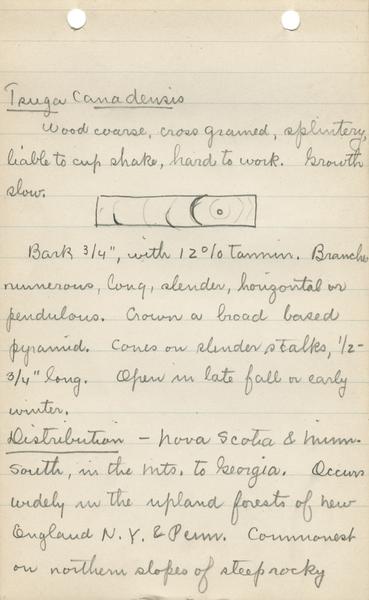 Tsuga Canadensis
Wood coarse, cross grained, splintery,
liable to cup shake, hard to work. Growth
slow.
Bark 3/4", with 12% tannin. Branches
numerous, long, slender, horizontal or
pendulous. Crown a broad based
pyramid. Cones on slender stalks, 1/2-
3/4" long. Open in late fall or early
winter.
Distribution - Nova Scotia & Minn.
South, in the mts. to Georgia. Occurs
widely in the upland forests of New
England N.Y. & Penn. Commonest
on northern slopes of steep rocky